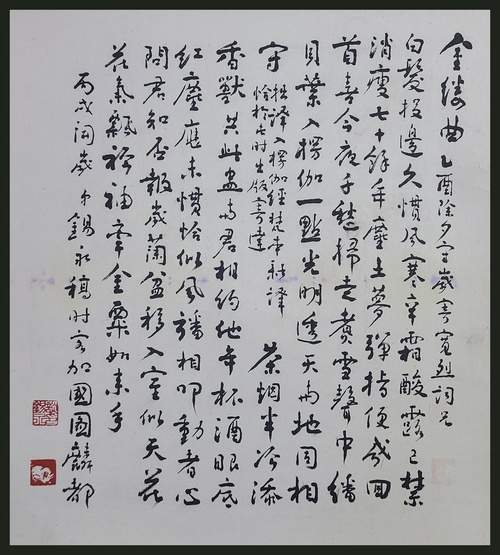 金缕曲 乙酉除夕守歲寄寬烈詞兄
白髮投邊久慣風寒辛霜酸露已禁
消瘦七十餘年塵土夢彈指便成回
首喜今夜千愁掃走煮雪聲中繙
貝葉入楞伽一點光明透天與地同相
守 拙譯入楞伽經梵本新譯
恰於此时出版寄達
茶烟半冷添
香獸共此盃與君相約他年杯酒眼底
紅塵應未慣恰似風旛相叩動者心
問君知否報歲蘭盆移入室似天花
花氣飄裕袖牽金粟如来手
丙戌開歲 弟錫永稿时客加國圖麟都